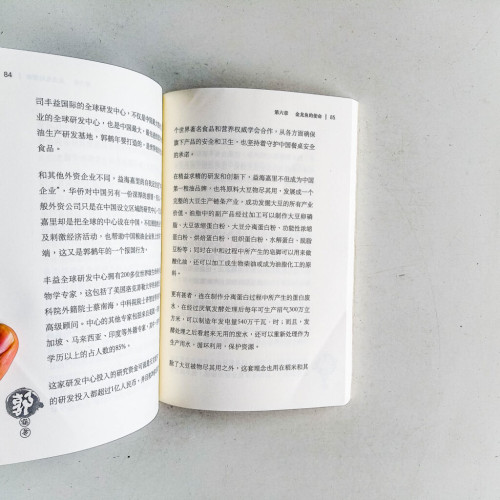 84
司丰益国际的全球研发中心，不仅是中国
业的全球研发中心，也是中国最大、最
油生产研发基地，郭鹤年要打造的，是世界
食品。
和其他外资企业不同，益海嘉里的
企业”，华侨对中国另有一份深厚的感情
般外资公司只是在中国设立区域的研究中心
嘉里却是把全球的中心设在中国，不仅
及刺激经济活动，也帮助中国粮油业
端，这又是郭鹤年的一个报国行为。
丰益全球研发中心拥有200多位世界
物学专家，这包括了美国德克萨斯
科院外籍院士蔡南海、中科院院士
高级顾问。中心的其他专家也包括
加坡、马来西亚、印度等外籍专家，其中
学历以上的占人数的85%。
这家研发中心投入的研究资金
的研发投入都超过1亿人民币，并
郭
第六章 金龙鱼的使命 | 85
个世界著名食品和营养权威学会合作，从各方面确保
旗下产品的安全和卫生，也坚持着守护中国餐桌安全
的承诺。
在精益求精的研发和创新下，益海嘉里不但成为中国
第一粮油品牌，也将原料大豆物尽其用，发展成一个
完整的大豆生产链条产业，成功发掘大豆的所有产业
价值。油脂中的副产品经过加工可以制作大豆卵磷
脂、大豆浓缩蛋白粉、大豆分离蛋白粉、功能性浓缩
蛋白粉、烘焙蛋白粉、组织蛋白粉、水解蛋白、脱脂
豆粉等；同时在中和过程中所产生的皂脚可以用来做
酸化油，还可以加工成生物柴油或成为油脂化工的原
料。
更有甚者，连在制作分离蛋白过程中所产生的蛋白废
水，在经过厌氧发酵处理后每年可生产沼气300万立
方米，可以制造年发电量540万千瓦·时；而且，发
酵处理之后看起来无用的废水，还可以重新处理作为
生产用水，循环利用，保护资源。
除了大豆被物尽其用之外，这套理念也用在稻米和其